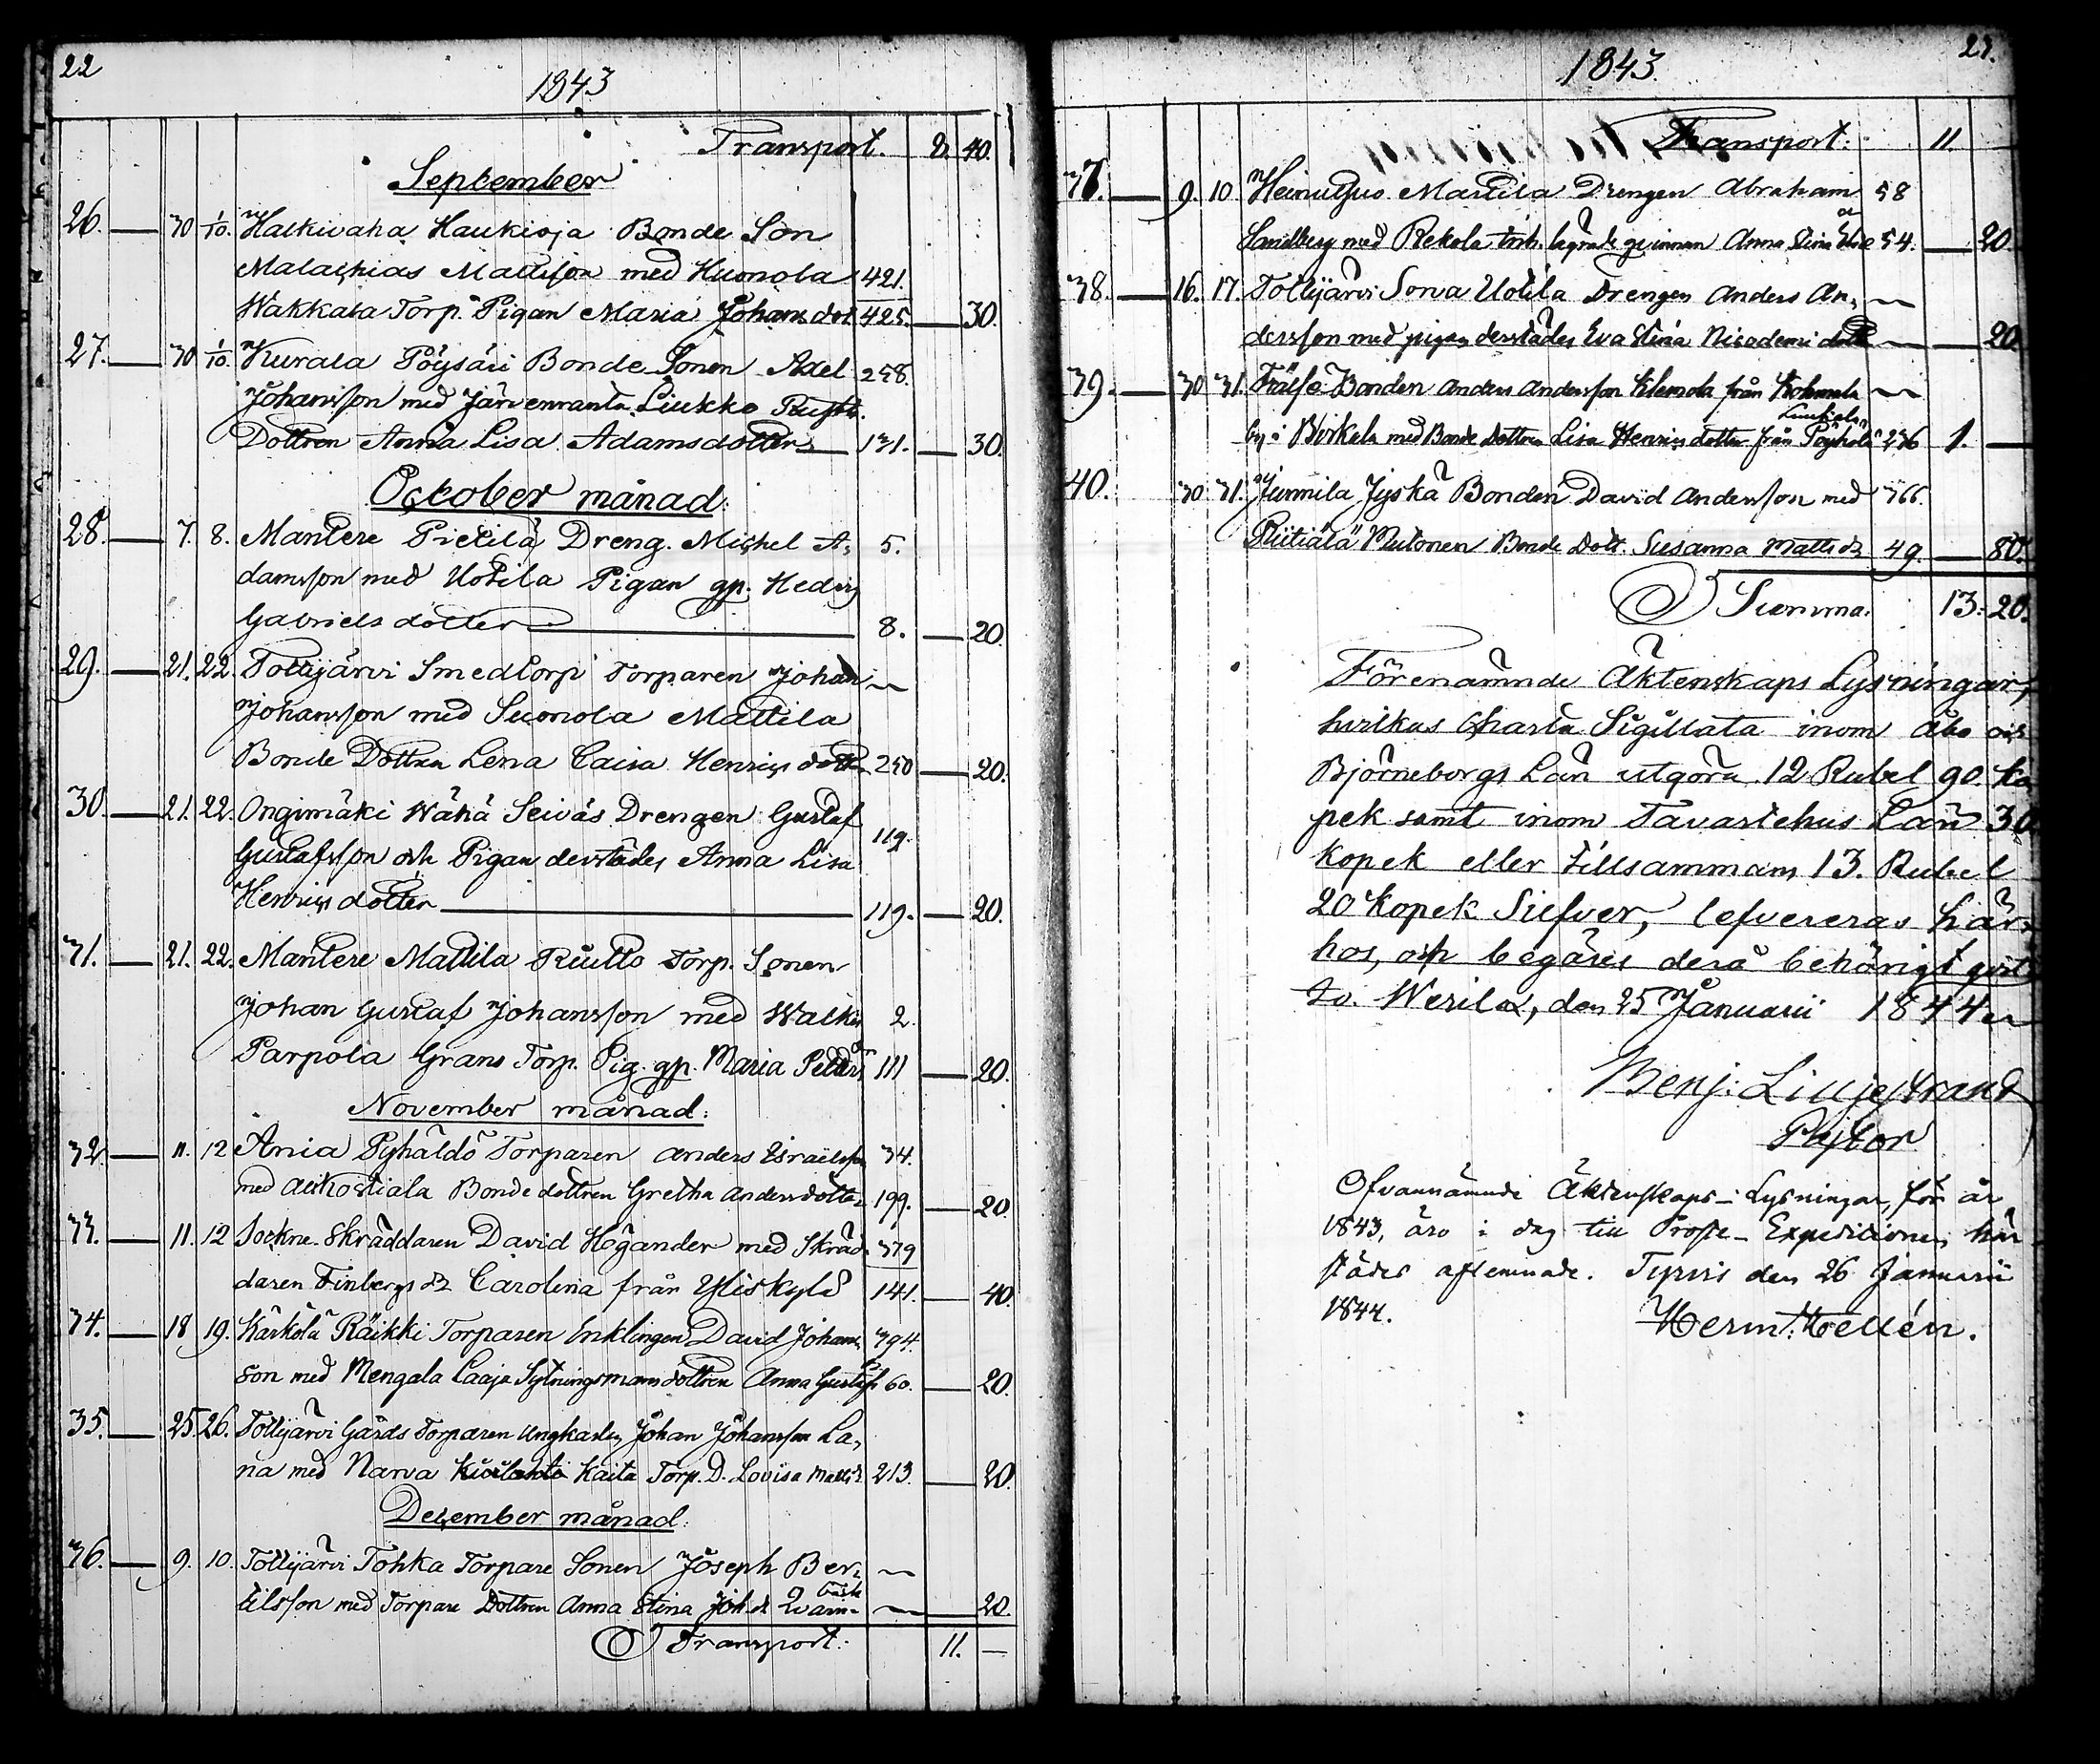 22
1843
Transport. 8. 40.
September
26. — 30 1/10. Halkivaha Haukioja Bonde Son
Malachias Mattsson med Huonola 421.
Wakkala Torp. Pigan Maria Johansdot 425. — 30.
27. — 30 1/10. Kurala Pöysäri Bonde Sonen Axel 258.
Johansson med Järvenranta Liukko Rusth.
Dottren Anna Lisa Adamsdotter 131. — 30.
October månad:
28. — 7. 8. Mantere Pietilä Dreng. Michel A- 5.
damsson med Uotila Pigan gp. Hedvig
Gabriels dotter — 8. — 20.
29. — 21. 22. Tottijärvi Smedtorp Torparen Johan —
Johansson med Suonola Mattila
Bonde Dottren Lena Caisa Henrics dotter 250 — 20.
30. — 21. 22. Ongimäki Wähä Seiväs Drengen Gustaf 119.
Gustafsson och Pigan derstädes Anna Lisa
Henrics dotter — 119. — 20.
31. — 21. 22. Mantere Mattila Ruutto Torp. Sonen
Johan Gustaf Johansson med Walkis 2.
Parpola Grans Torp. Pig. gp. Maria Peters dr 111 — 20.
November månad:
32. — 11. 12 Ania Pyhäldö Torparen Anders Israelsson 34.
med Alkostiala Bonde dottren Gretha Andersdotter 199. — 20.
33. — 11. 12 Sockne Skräddaren David Högander med Skräd- 379
daren Finbergs dr Carolina från Yliskylä 141. — 40.
34. — 18 19. Kärkölä Räikki Torparen Enklingen David Johans- 394.
son med Mengala Laaja Sytningsmans dottren Anna Gustafs dr 60. — 20.
35. — 25. 26. Tottijärvi Gårds Torparen Ungkarlen Johan Johansson La-
na med Narva Kaita Torp. D. Lovisa Matts dr 213. — 20.
December månad:
36. — 9. 10. Tottijärvi Tohka Torpare Sonen Joseph Ber- —
tilsson med Torpare Dottren Anna Stina Joh. dr — 20.
Transport: 11. —
1843.
23.
Transport: 11.
37. — 9. 10 Heinusuo Mattila Drengen Abraham 58
Sandberg med Rekola Inh. lägrade qvinnan Anna Stina 54. — 20.
38. — 16. 17. Tottijärvi Sorva Uotila Drengen Anders An- —
dersson med pigan derstädes Eva Stina Nicodemi dotter — 20.
39. — 30 31. Frälse Bonden Anders Andersson Klemola från —
by i Birkala med Bonde Dottren Lisa Henrics dotter från 236 1. —
40. 30 31. Junnila Jyskä Bonden David Andersson med 366.
Riitiälä Mutonen Bonde Dott. Susanna Matts dr 49. — 80.
Summa. 13: 20.
Förenämnde Äktenskaps Lysningar,
hvilkas Charta Sigillata inom Åbo och
Björneborgs Län utgöra 12 Rubel 90. Ko
pek samt inom Tavastehus Län 30
kopek eller tillsammans 13. Rubel
20 kopek Silfver, lefvereras här-
hos, och begäres derå behörigt qvit-
to. Wesilax, den 25 Januarii 1844
Benj: Liljestrand
Pastor
Ofvannämnde Äktenskaps-Lysningar, för år
1843, äro i dag till Prosts-Expeditionen här-
städes aflemnade. Tyrvis den 26 Januarii
1844. Herm: Hellén.